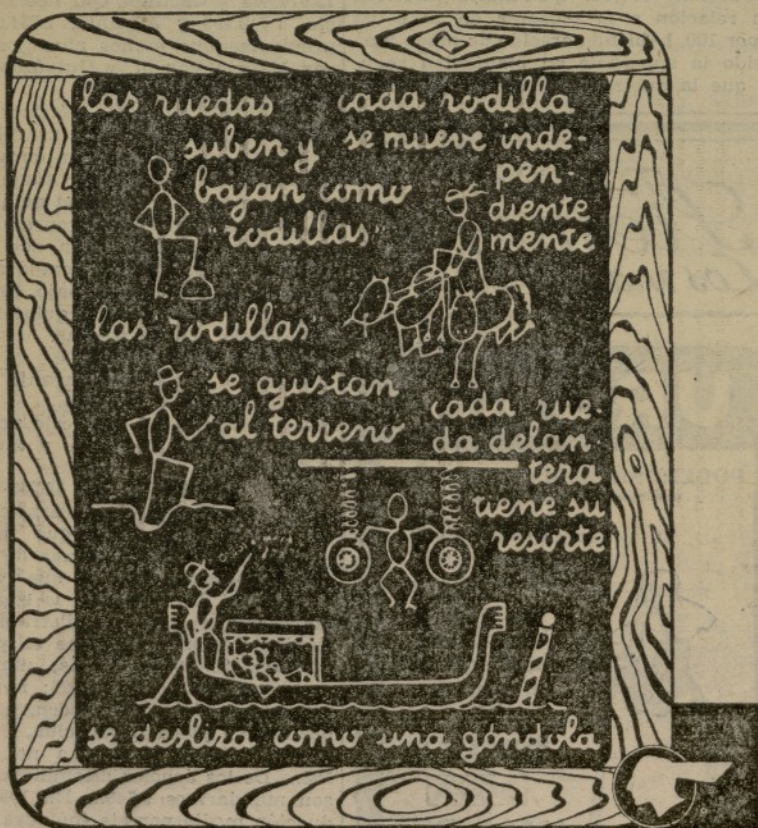 las ruedas
suben y
bajan como
"rodillas"
cada rodilla
se mueve inde-
pen-
diente
mente
las "rodillas"
se ajustan
al terreno
cada rue-
da delan-
tera
tiene su
resorte
se desliza como una góndola